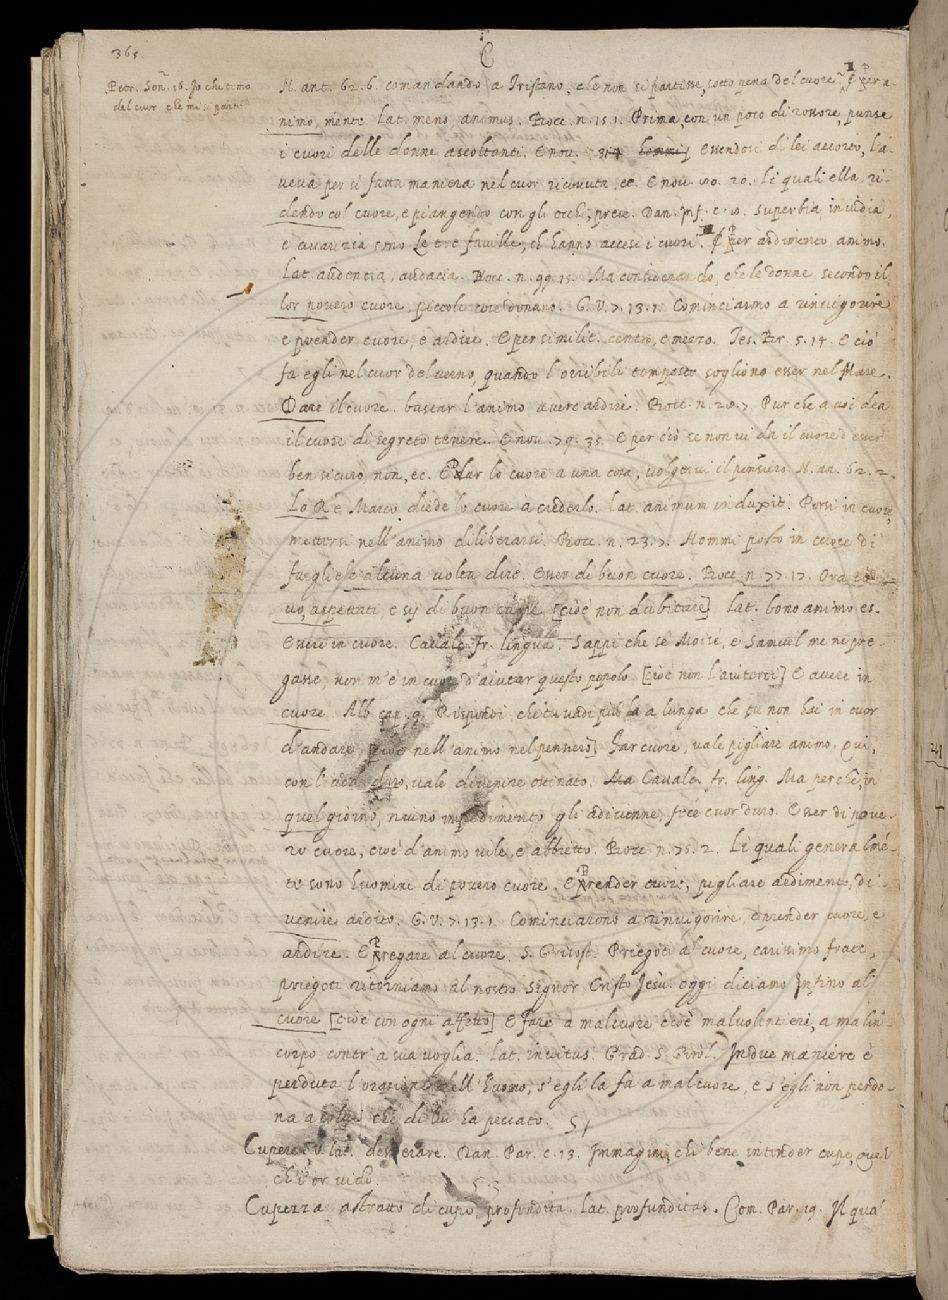 365.
C
Petr. Son. 16. Io che temo
del cuor che mi si parte
N. ant. 62. 6. comandando a Tristano, che non si partisse, sotto pena del cuore. ¶ Per a-
nimo, mente. Lat. mens, animus. Bocc. n. 15. 1. Prima, con un poco di rossore, punse
i cuori delle donne ascoltanti. E nou. essendosi di lei accorto, l'a-
ueua per sì fatta maniera nel cuor riceuuta, ec. E nou. 20. Li quali ella, ri-
dendo co' cuore, e piangendo con gli occhi, prese. Dan. Inf. c. 6. Superbia, inuidia,
e auarizia sono le tre fauille, ch' hanno accesi i cuori. ¶ Per ardimento, animo.
Lat. audentia, audacia. Bocc. n. 99. 15. Ma considerando, che le donne secondo il
lor pouero cuore, piccole cose donano. G. V. 7. 13. 1. Cominciarono a rinuigorire
e prender cuore, e ardire. E per similit. centro, e mezzo. Tes. Br. 5. 14. E ciò
fa egli nel cuor del uerno, quando l'orribili tempeste sogliono esser nel Mare.
Dare il cuore. bastar l'animo auere ardire. Bocc. n. 20. 7. Pur che a uoi dea
il cuore di segreto tenere. E nou. 79. 35. E per ciò se non ui dà il cuore d'esser
ben sicuro, non, ec. E dar lo cuore a una cosa, uolgerui il pensiero. N. an. 62. 2.
Lo Re Marco diede lo cuore a crederlo. Lat. animum induxit. Porsi in cuore,
mettersi nell'animo diliberarsi. Bocc. n. 23. 7. Hommi posto in cuore di
fargliele alcuna volta dire. Esser di buon cuore. Bocc. n. 77. 17. Ora
uo, aspettati e sij di buon cuore [cioè non dubitare] Lat. bono animo es-
Essere in cuore. Caualc. fr. lingua. Sappi che se Moise, e Samuel me ne pre-
gasse, non m'è in cuore d'aiutar questo popolo [cioè non l'aiuterei] E auere in
cuore. Alb. cap. 9. Rispondi, che tu uadi più là a lunga che tu non hai in cuor
d'andare, [cioè nell'animo nel pensiero] Far cuore, uale pigliare animo. qui,
con l'add. duro, uale diuenire ostinato. Caualc. fr. ling. Ma perchè, in
quel giorno, niuno impedimento gli adiuenne, fece cuor duro. Esser di poue-
ro cuore, cioè d'animo uile, e abbietto. Bocc. n. 75. 2. Li quali generalmẽ-
te sono huomini di pouero cuore. E Prender cuore, pigliare ardimento, di-
uenire ardito. G. V. 7. 13. 1. Cominciarono a rinuigorire, e prender cuore, e
ardire. E Pregare al cuore. S. Grisost. Priegoti al cuore, carissimo frate,
priegoti ritorniamo al nostro Signor Cristo Iesù. oggi diciamo Infino al
cuore [cioè con ogni affetto] E fare a malcuore cioè maluolentieri, a malin-
corpo, contr'a sua uoglia. Lat. inuitus. Grad. S. Girol. In due maniere è
perduta l'orazione dell'huomo, s'egli la fa a malcuore, e s'egli non perdo-
na a colui che di lui ha peccato.
51
Cupere. V. lat. desiderare. Dan. Par. c. 13. Immagini, chi bene intender cupe, quel
ch'i' or uidi.
53
Cupezza astratto di cupo, profondità. Lat. profunditas. Com. Par. 19. Il qua'